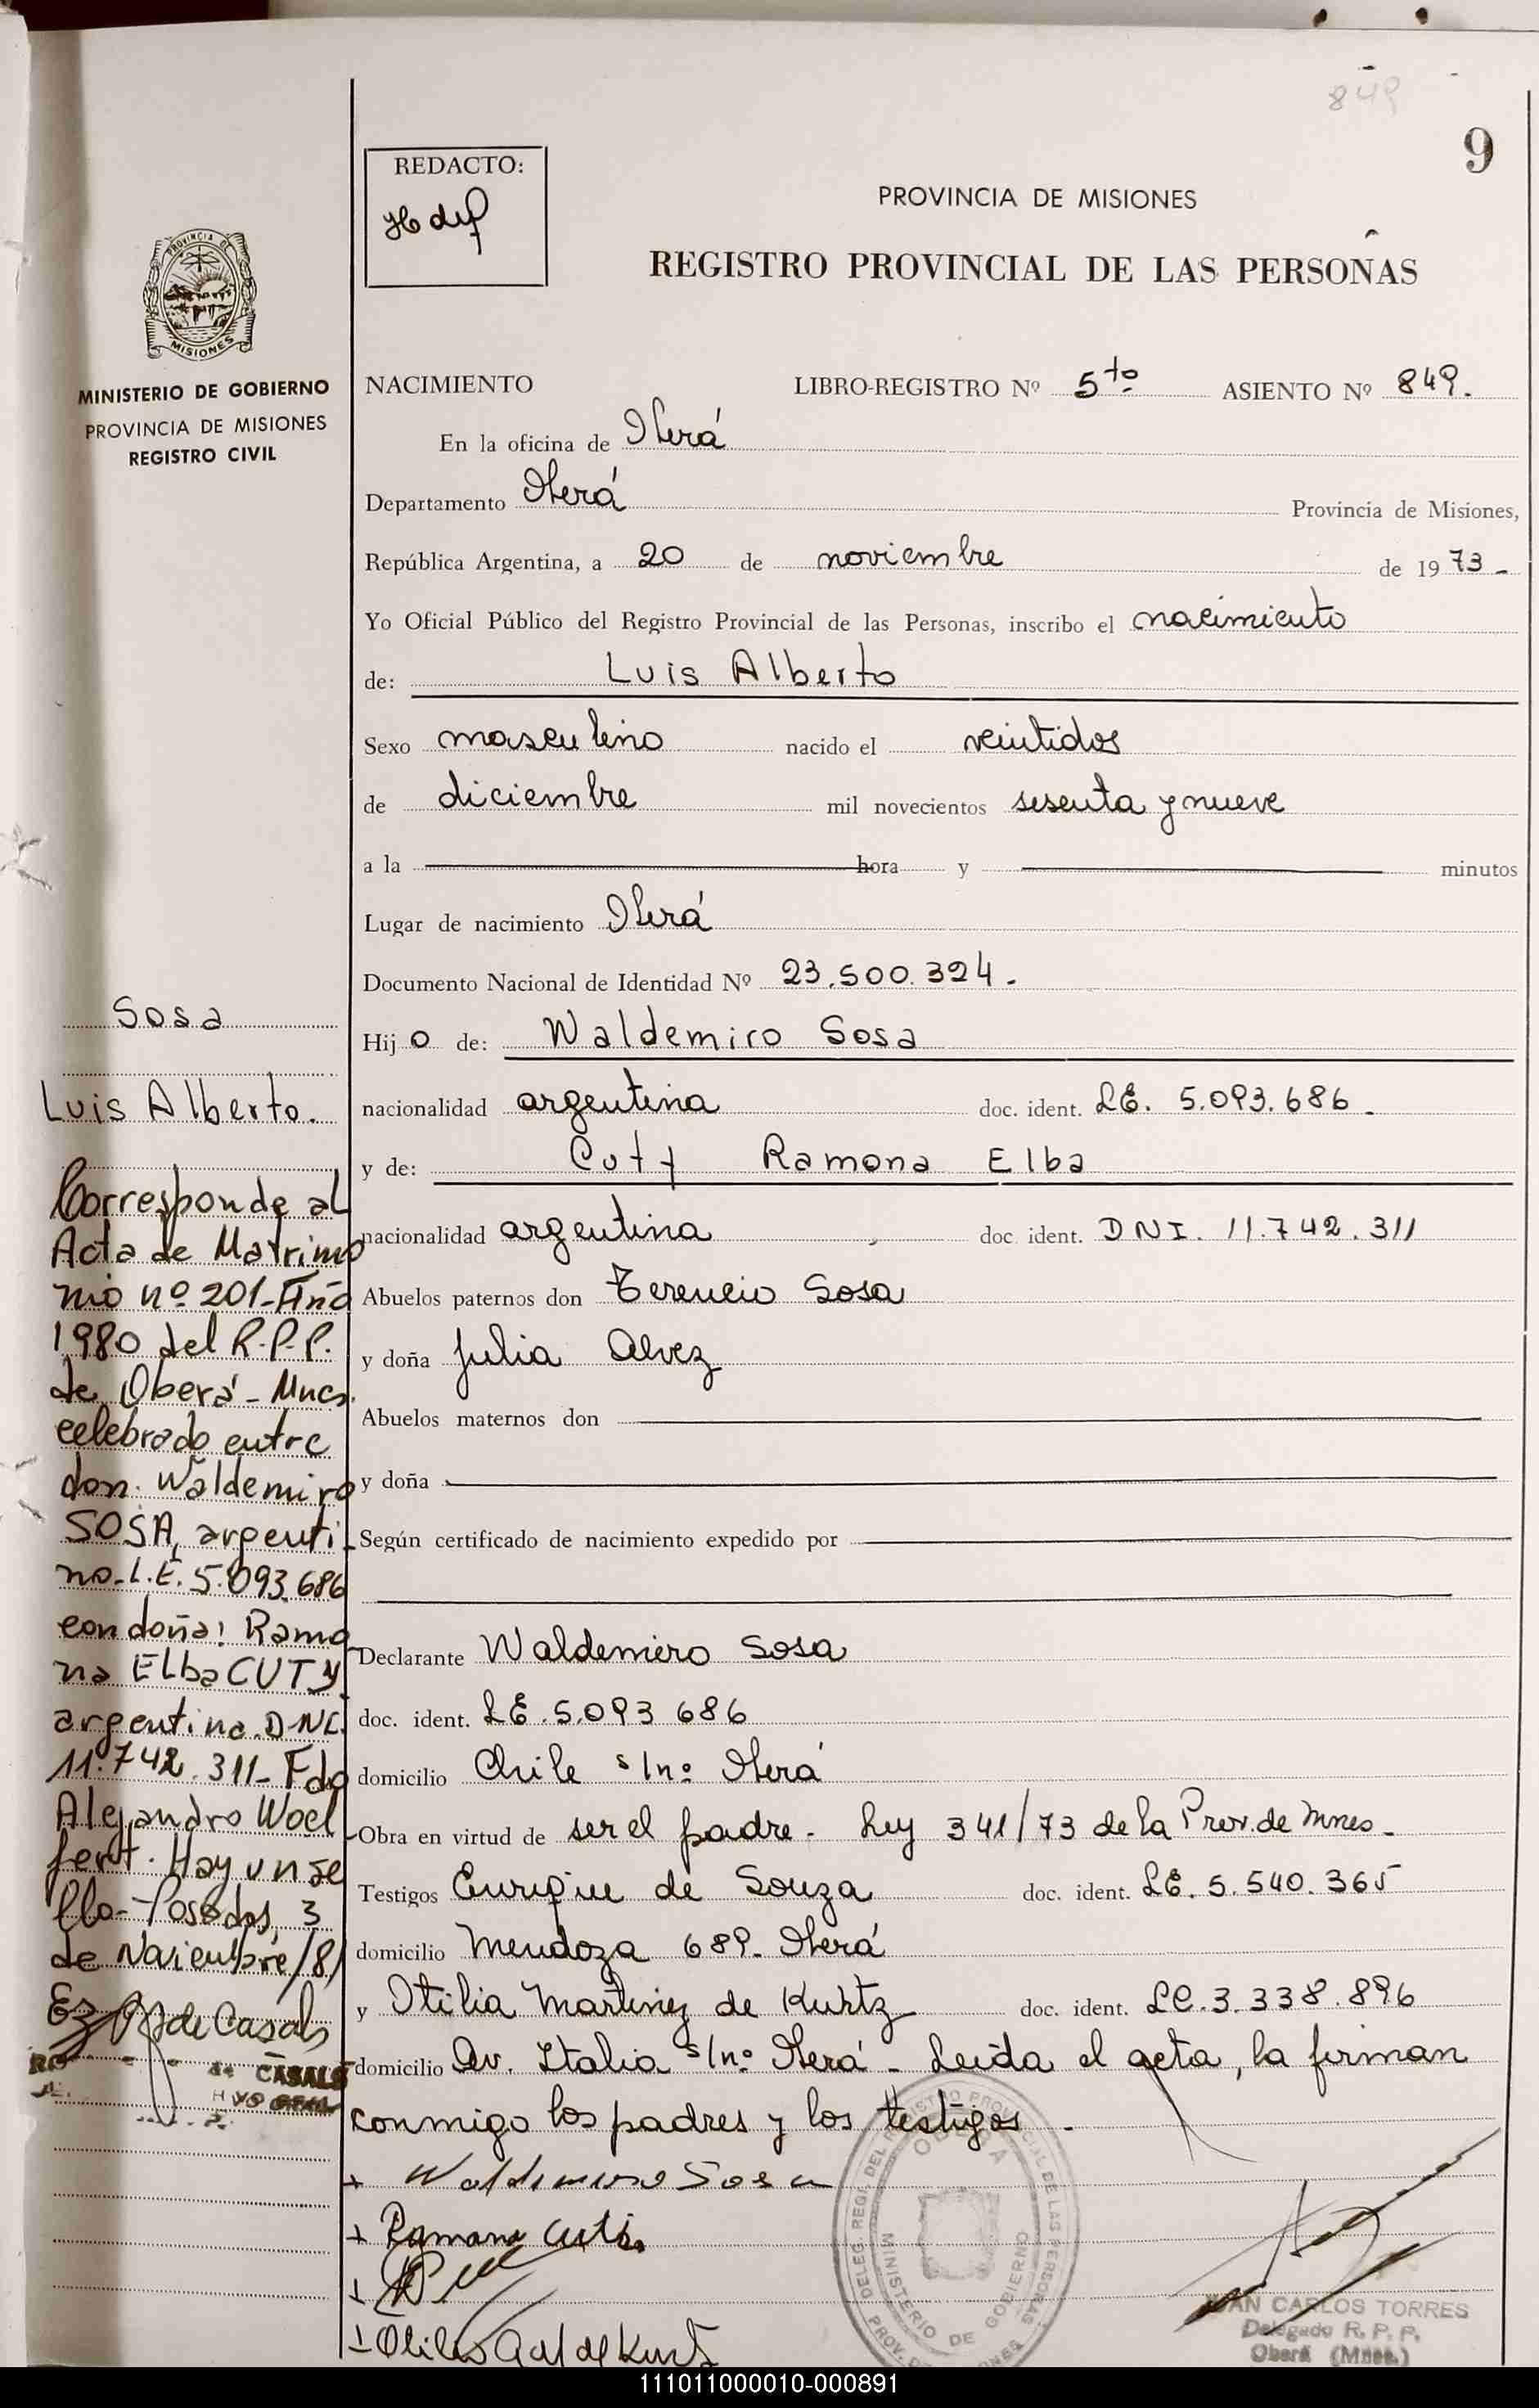 849
9
REDACTO:
PROVINCIA DE MISIONES
REGISTRO PROVINCIAL DE LAS PERSONAS
PROVINCIA DE
MISIONES
MINISTERIO DE GOBIERNO
PROVINCIA DE MISIONES
REGISTRO CIVIL
NACIMIENTO LIBRO-REGISTRO Nº 5to ASIENTO Nº 849.
En la oficina de Oberá
Departamento Oberá Provincia de Misiones,
República Argentina, a 20 de noviembre de 1973-
Yo Oficial Público del Registro Provincial de las Personas, inscribo el nacimiento
de: Luis Alberto
Sexo masculino nacido el veintidos
de diciembre mil novecientos sesenta y nueve
a la hora y minutos
Lugar de nacimiento Oberá
Documento Nacional de Identidad Nº 23.500.324.
Hijo de: Waldemiro Sosa
nacionalidad argentina doc. ident. LE. 5.093.686.
y de: Cuty Ramona Elba
nacionalidad argentina doc ident. DNI. 11.742.311
Abuelos paternos don Terencio Sosa
y doña Julia Alvez
Abuelos maternos don
y doña
Según certificado de nacimiento expedido por
Declarante Waldemiro Sosa
doc. ident. LE.5.093 686
domicilio Chile s/nº Oberá
Obra en virtud de ser el padre. Ley 341/73 de la Prov. de Mnes.
Testigos Enrique de Souza doc. ident. LE. 5.540.365
domicilio Mendoza 689. Oberá
y Otilia Martinez de Kurtz doc. ident. LC.3.338.896
domicilio Av. Italia s/nº Oberá - Leida el acta, la firman
conmigo los padres y los testigos.
Waldemiro Sosa
Ramona Cuti
Sosa
Luis Alberto.
Corresponde al
Acta de Matrimo
nio nº 201-Año
1980 del R.P.P.
de Oberá - Mnes.
celebrado entre
don. Waldemiro
SOSA, argenti-
no-L.E. 5.093.686
con doña: Ramo
na ELba CUTY
argentina. DNI.
11.742.311- Fdo
Alejandro Woel
fert. Hay un se
llo- Posadas, 3
de Noviembre/81
de Casals
de CASALS
DELEG. REGI. DEL REGISTRO PROVINCIAL DE LAS PERSONAS
OBERÁ
MINISTERIO DE GOBIERNO
JUAN CARLOS TORRES
Delegado R. P. P.
Oberá (Mnes.)
111011000010-000891